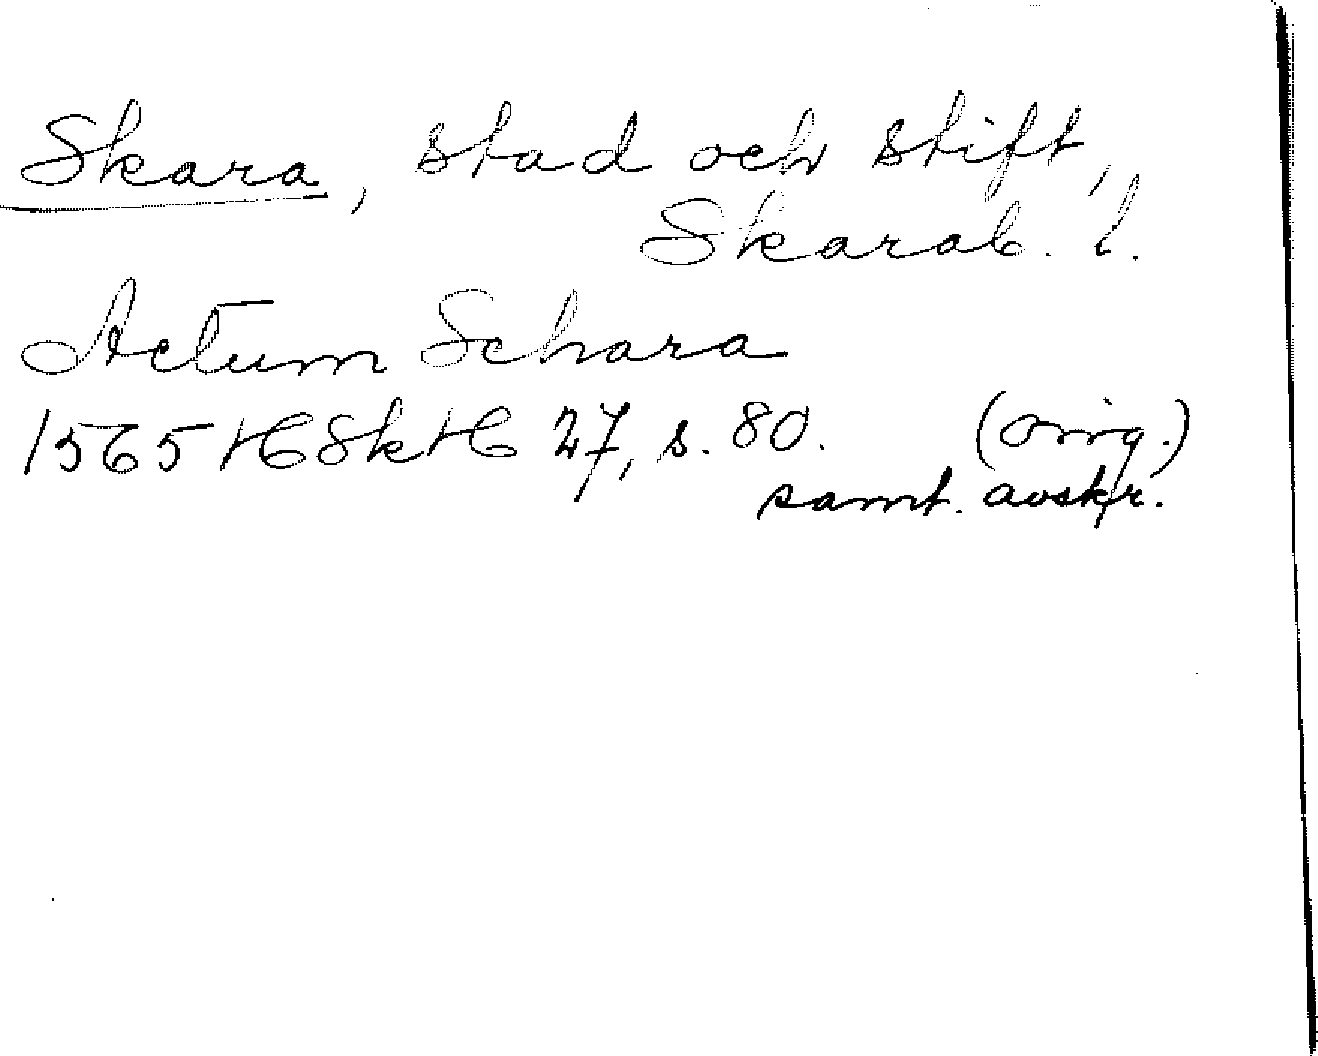 Skara, stad och stift,
Skarab. l.
Actum Schara
1565 HSkH 27, s. 80. (orig.)
samt. avskr.